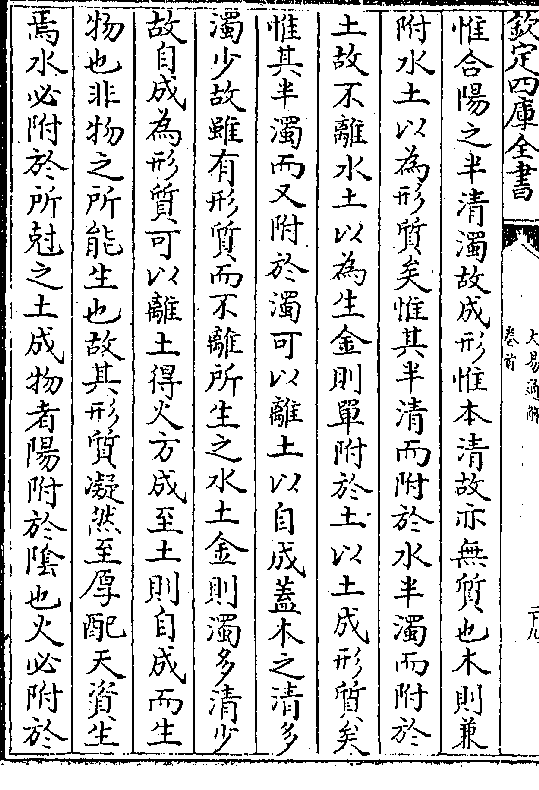 欽定四庫全書
大易通解
卷前
二十九
惟合陽之半清濁故成形惟本清故亦無質也木則兼
附水土以為形質矣惟其半清而附於水半濁而附於
土故不離水土以為生金則單附於土以土成形質矣
惟其半濁而又附於濁可以離土以自成蓋木之清多
濁少故雖有形質而不離所生之水土金則濁多清少
故自成為形質可以離土得火方成至土則自成而生
物也非物之所能生也故其形質凝然至厚配天資生
焉水必附於所尅之土成物者陽附於陰也火必附於